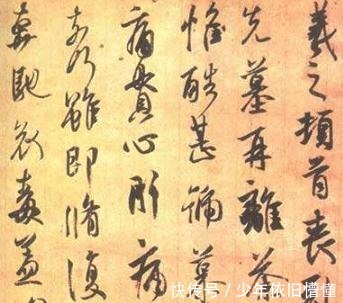 羲之頓首喪
先墓再離荼
惟酷甚號慕
痛貫心肝痛
奈何雖即脩復
奔馳哀毒益
快传号 / 少年依旧懵懂